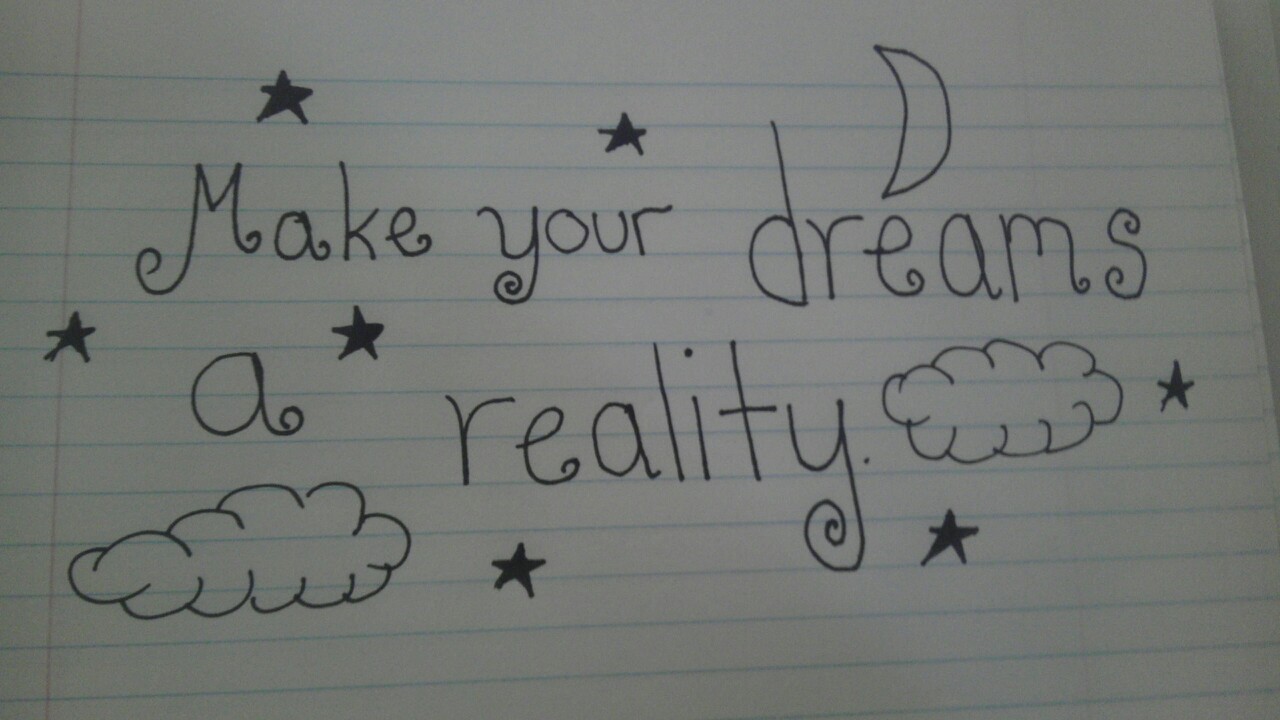 Make your dreams
a reality.